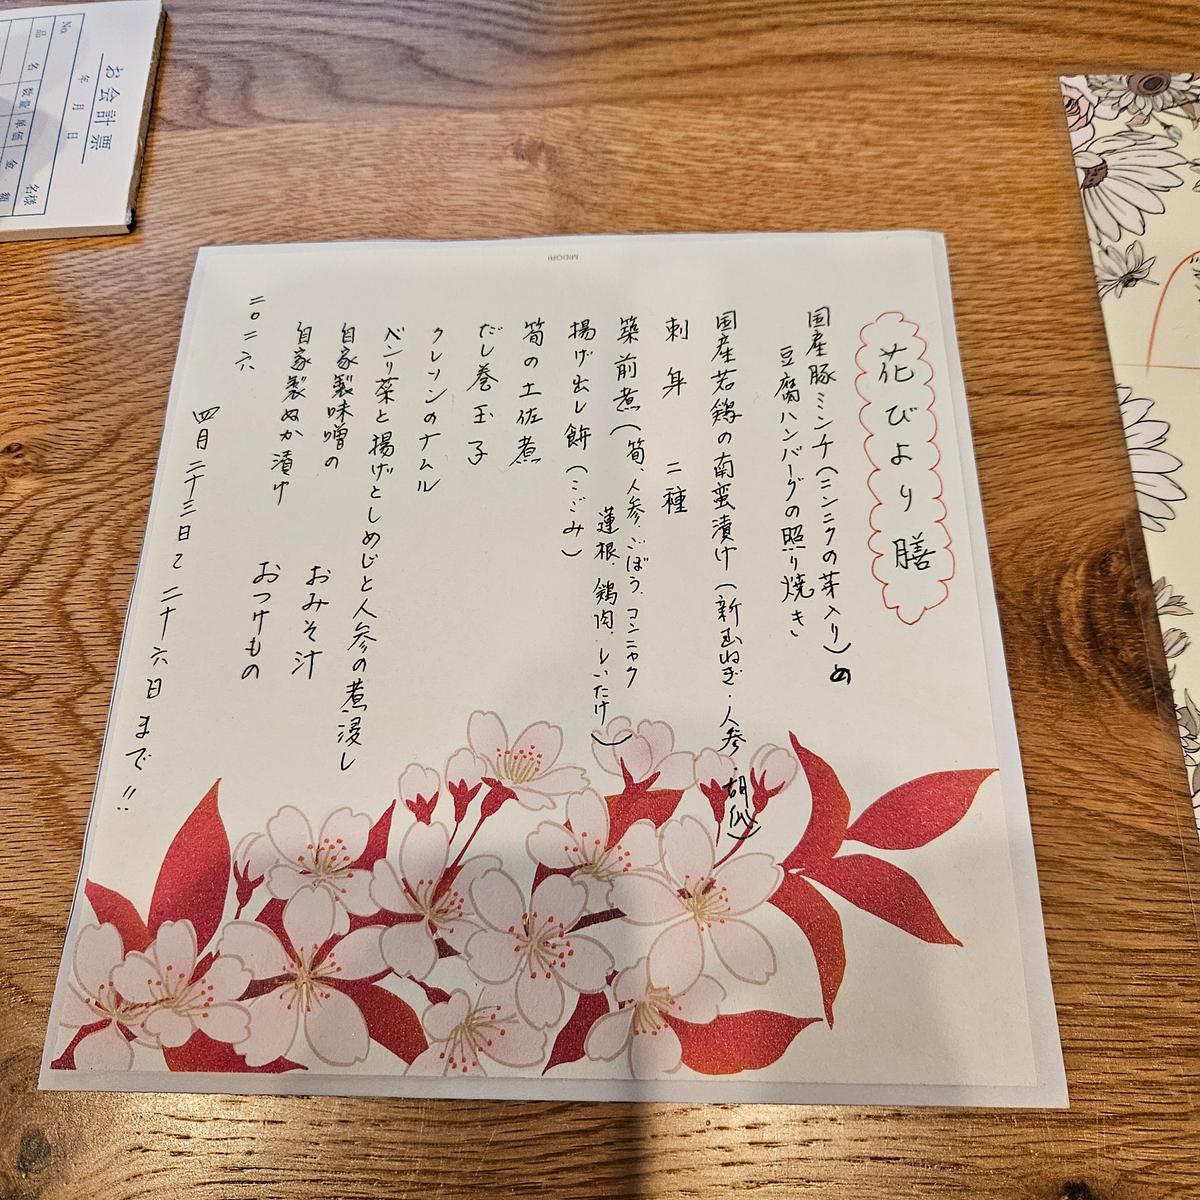 花びより膳
国産豚ミンチ(ニンニクの芽入り)の
豆腐ハンバーグの照り焼き
国産若鶏の南蛮漬け(新玉ねぎ・人参・胡瓜)
刺身 二種
築前煮(筍、人参、ごぼう、コンニャク
蓮根、鶏肉、しいたけ)
揚げ出し餅(こごみ)
筍の土佐煮
だし巻玉子
クレソンのナムル
ベンリ菜と揚げとしめじと人参の煮浸し
自家製味噌の おみそ汁
自家製ぬか漬け おつけもの
二〇二六 四月二十三日~二十六日まで!!
MIDORI
お会計票
No.
年 月 日
名様
品名 数量 単価 金額